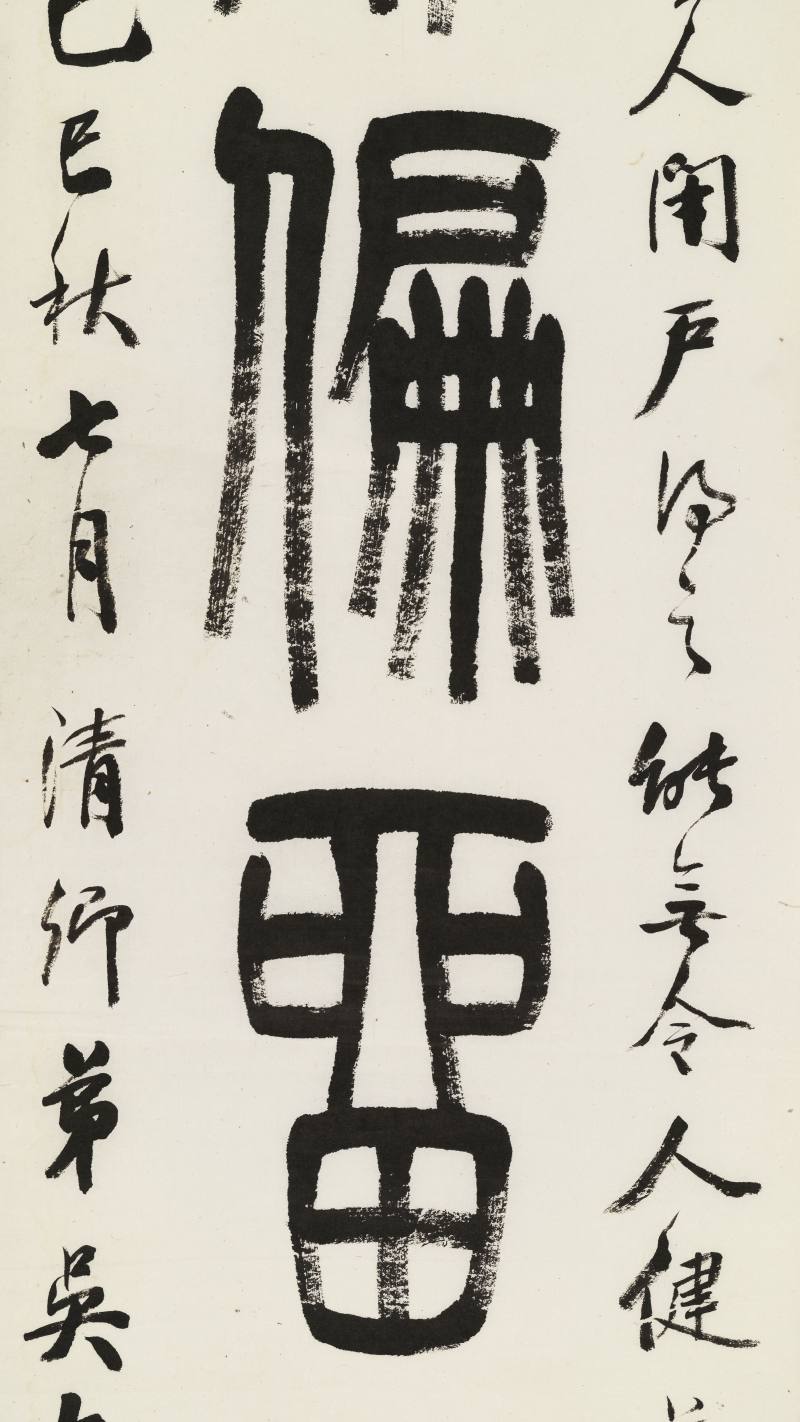 人閉戶得之能無令人健
偏畱
己巳秋七月清卿弟吳